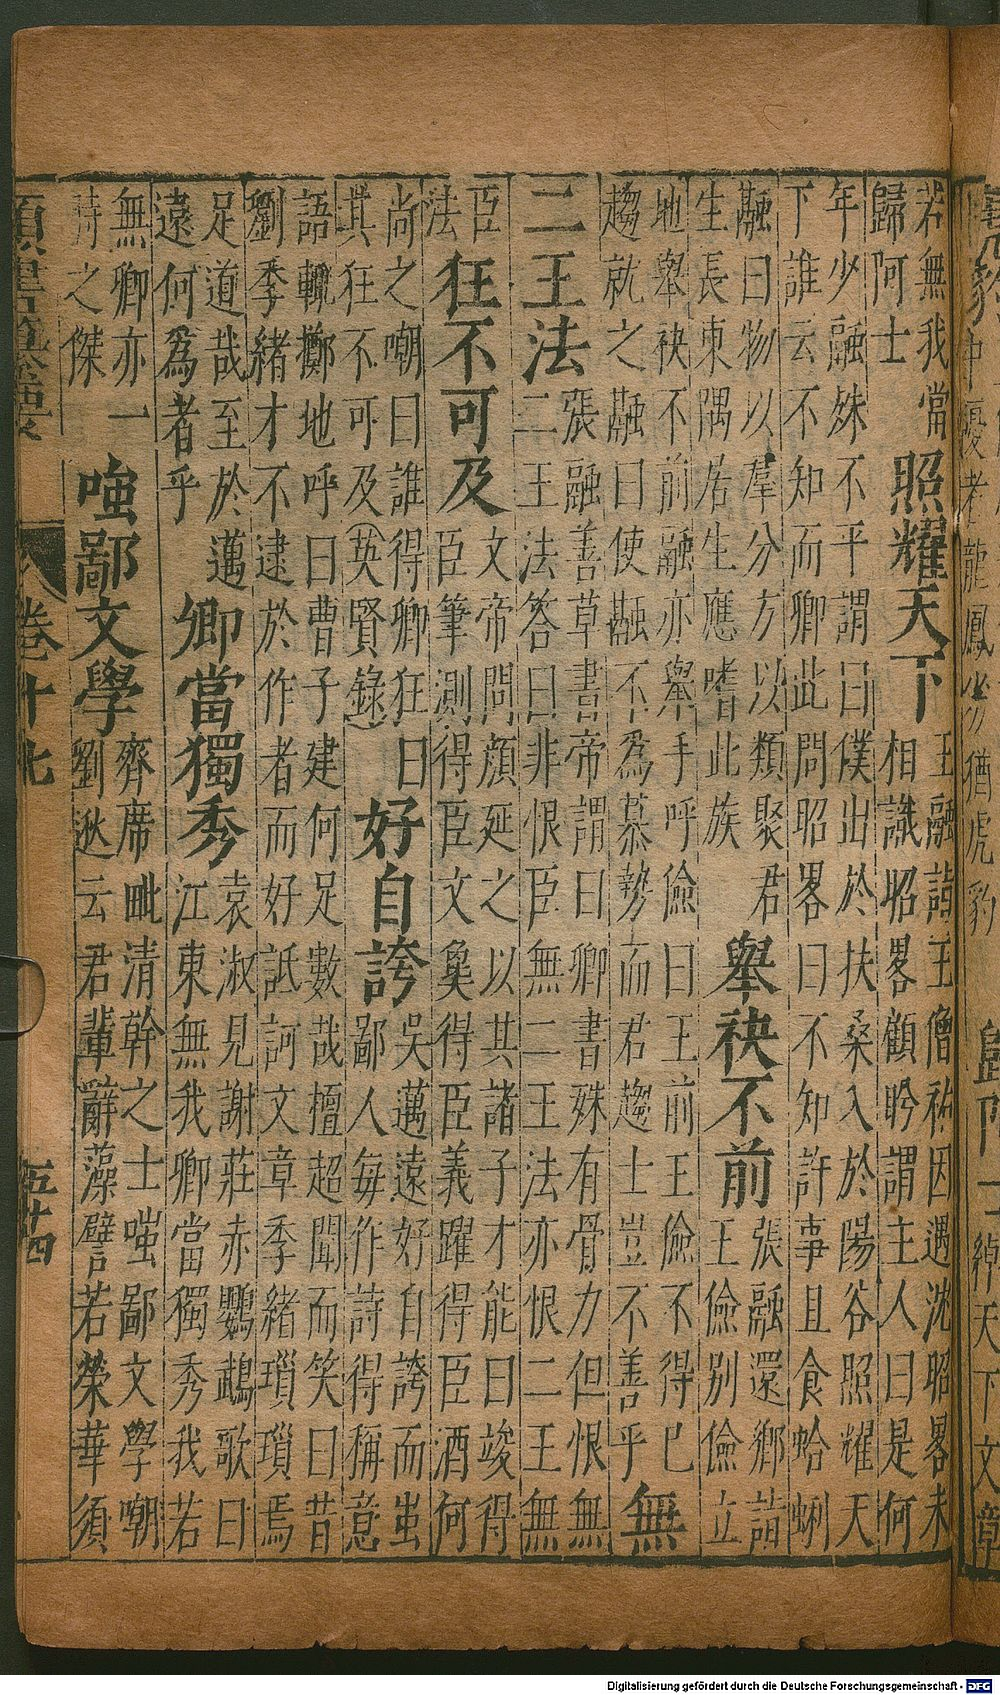 若無我當
歸阿士
照耀天下
王融詣王僧祐因遇沈昭畧未
相識昭畧顧盻謂主人曰是何
年少融姝不平謂曰僕出於扶桑入於陽谷照耀天
下誰云不知而卿此問昭畧曰不知許事且食蛤蜊
融曰物以羣分方以類聚君
生長東隅居生應嗜此族
舉袂不前
張融還鄉詣
王儉別儉立
地舉袂不前融亦舉手呼儉曰王前王儉不得已
趨就之融曰使融不為慕勢而君趨士豈不善乎
無
二王法
張融善草書帝謂曰卿書殊有骨力但恨無
二王法答曰非恨臣無二王法亦恨二王無
臣
法
狂不可及
文帝問顏延之以其諸子才能曰竣得
臣筆測得臣文㚟得臣義躍得臣酒何
尚之嘲曰誰得卿狂曰
其狂不可及(英賢錄)
好自誇
吳邁遠好自誇而蚩
鄙人每作詩得稱意
語輒擲地呼曰曹子建何足數哉檀超聞而笑曰昔
劉季緒才不逮於作者而好詆訶文章季緒瑣瑣焉
足道哉至於邁
遠何為者乎
卿當獨秀
袁淑見謝莊赤鸚鵡歌曰
江東無我卿當獨秀我若
無卿亦一
時之傑
嗤鄙文學
齊席毗清幹之士嗤鄙文學嘲
劉逖云君輩辭藻譬若榮華須
卷十九
Digitalisierung gefördert durch die Deutsche Forschungsgemeinschaft - DFG